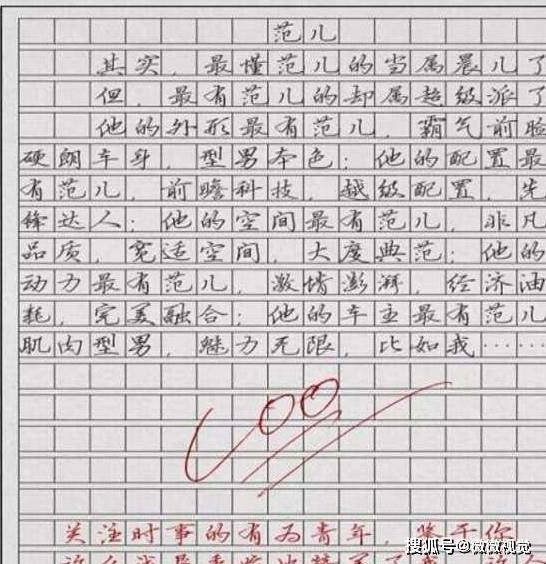 范儿
其实，最懂范儿的当属晨儿了
但，最有范儿的却属超级派了
他的外形最有范儿，霸气前脸
硬朗车身，型男本色；他的配置最
有范儿，前瞻科技，越级配置，先
锋达人；他的空间最有范儿，非凡
品质，宽适空间，大度典范；他的
动力最有范儿，激情澎湃，经济油
耗，完美融合；他的车主最有范儿
肌肉型男，魅力无限，比如我……
100
关注时事的有为青年，鉴于你
搜狐号@微微视觉